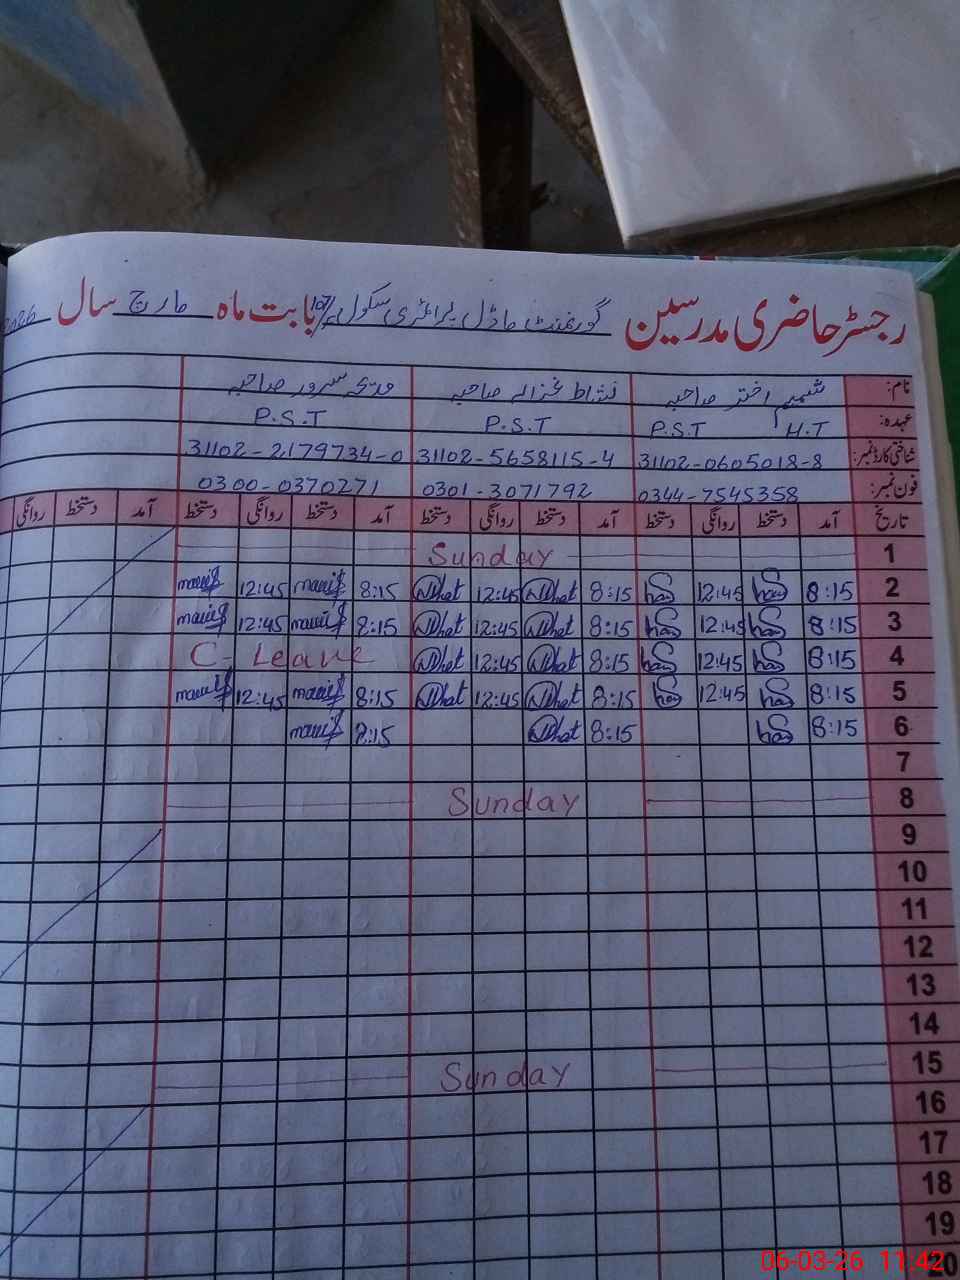 رجسٹر حاضری مدرسین گورنمنٹ ماڈل پرائمری سکول بابت ماہ مارچ سال 2026
نام: شمیم اختر صاحبہ نشاط غزالہ صاحبہ مدیحہ سرور صاحبہ
عہدہ: H.T P.S.T P.S.T P.S.T
شناختی کارڈ نمبر: 31102-0605018-8 31102-5658115-4 31102-2179734-0
فون نمبر: 0344-7545358 0301-3071792 0300-0370271
تاریخ آمد دستخط روانگی دستخط آمد دستخط روانگی دستخط آمد دستخط روانگی دستخط آمد دستخط روانگی
1 Sunday
2 8:15 12:45 8:15 12:45 8:15 12:45
3 8:15 12:45 8:15 12:45 8:15 12:45
4 8:15 12:45 8:15 12:45 C- Leave
5 8:15 12:45 8:15 12:45 8:15 12:45
6 8:15 8:15 8:15
7
8 Sunday
9
10
11
12
13
14
15 Sunday
16
17
18
19
20
06-03-26 11:42